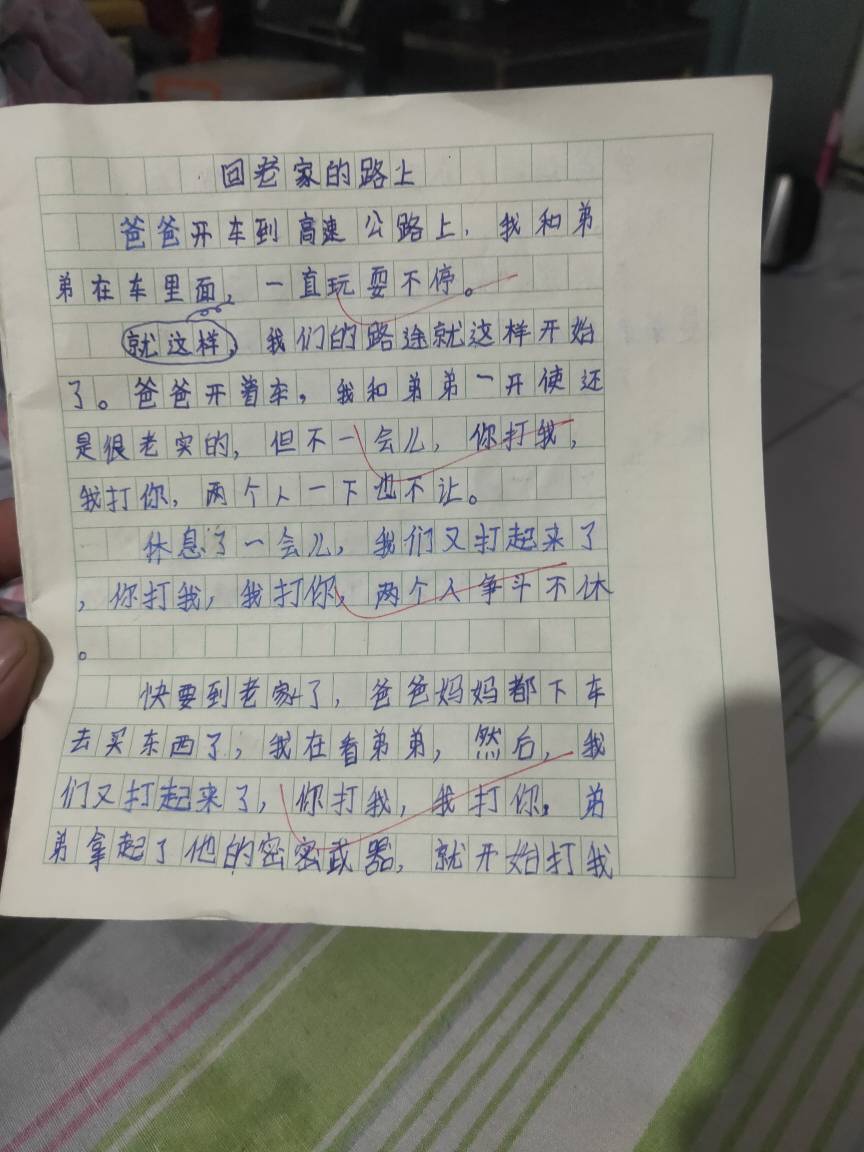 回老家的路上
爸爸开车到高速公路上，我和弟
弟在车里面，一直玩耍不停。
就这样，我们的路途就这样开始
了。爸爸开着车，我和弟弟一开使还
是很老实的，但不一会儿，你打我，
我打你，两个人一下也不让。
休息了一会儿，我们又打起来了
，你打我，我打你，两个人争斗不休
。
快要到老家了，爸爸妈妈都下车
去买东西了，我在看弟弟，然后，我
们又打起来了，你打我，我打你，弟
弟拿起了他的密密武器，就开始打我